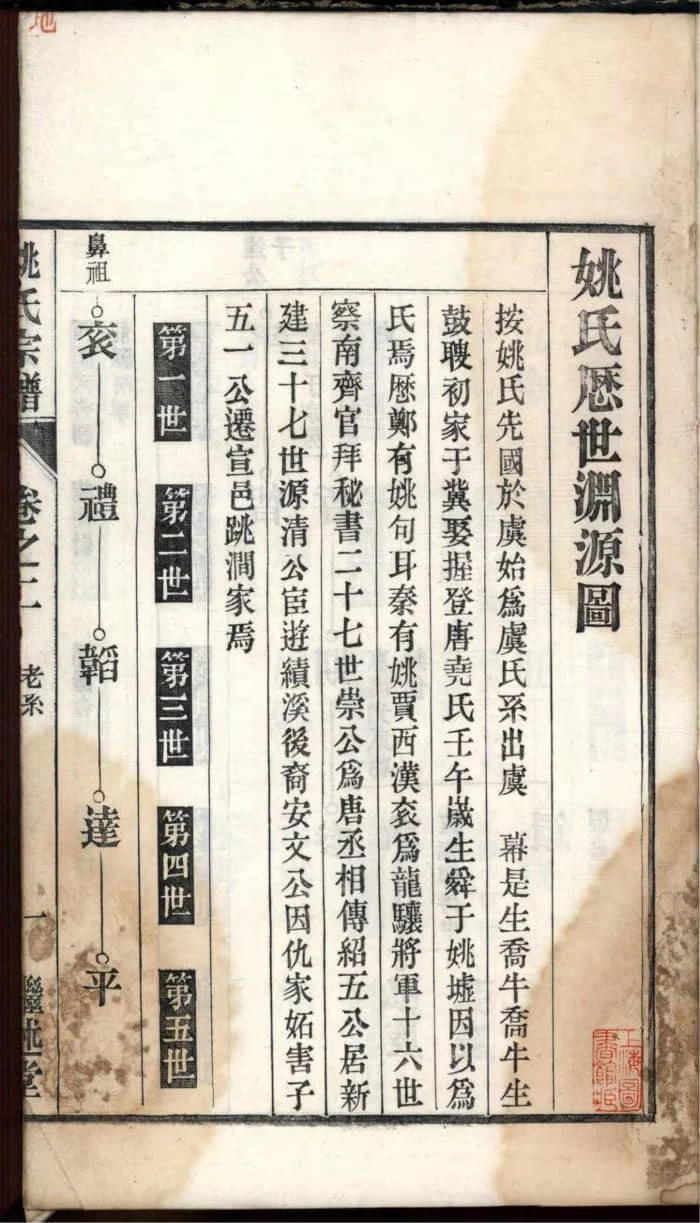 姚氏厯世淵源圖
按姚氏先國於虞始爲虞氏系出虞　幕是生喬牛喬牛生
鼓叟初家于冀娶握登唐堯氏壬午嵗生舜于姚墟因以爲
氏焉厯鄭有姚句耳秦有姚賈西漢衮爲龍驤將軍十六世
察南齊官拜秘書二十七世崇公爲唐丞相傳紹五公居新
建三十七世源清公宦遊績溪後裔安文公因仇家妬害子
五一公遷宣邑跳澗家焉
第一世 第二世 第三世 第四世 第五世
鼻祖 衮 禮 韜 達 平
姚氏宗譜 卷之二 老系 一 述堂
上海圖書館藏
地